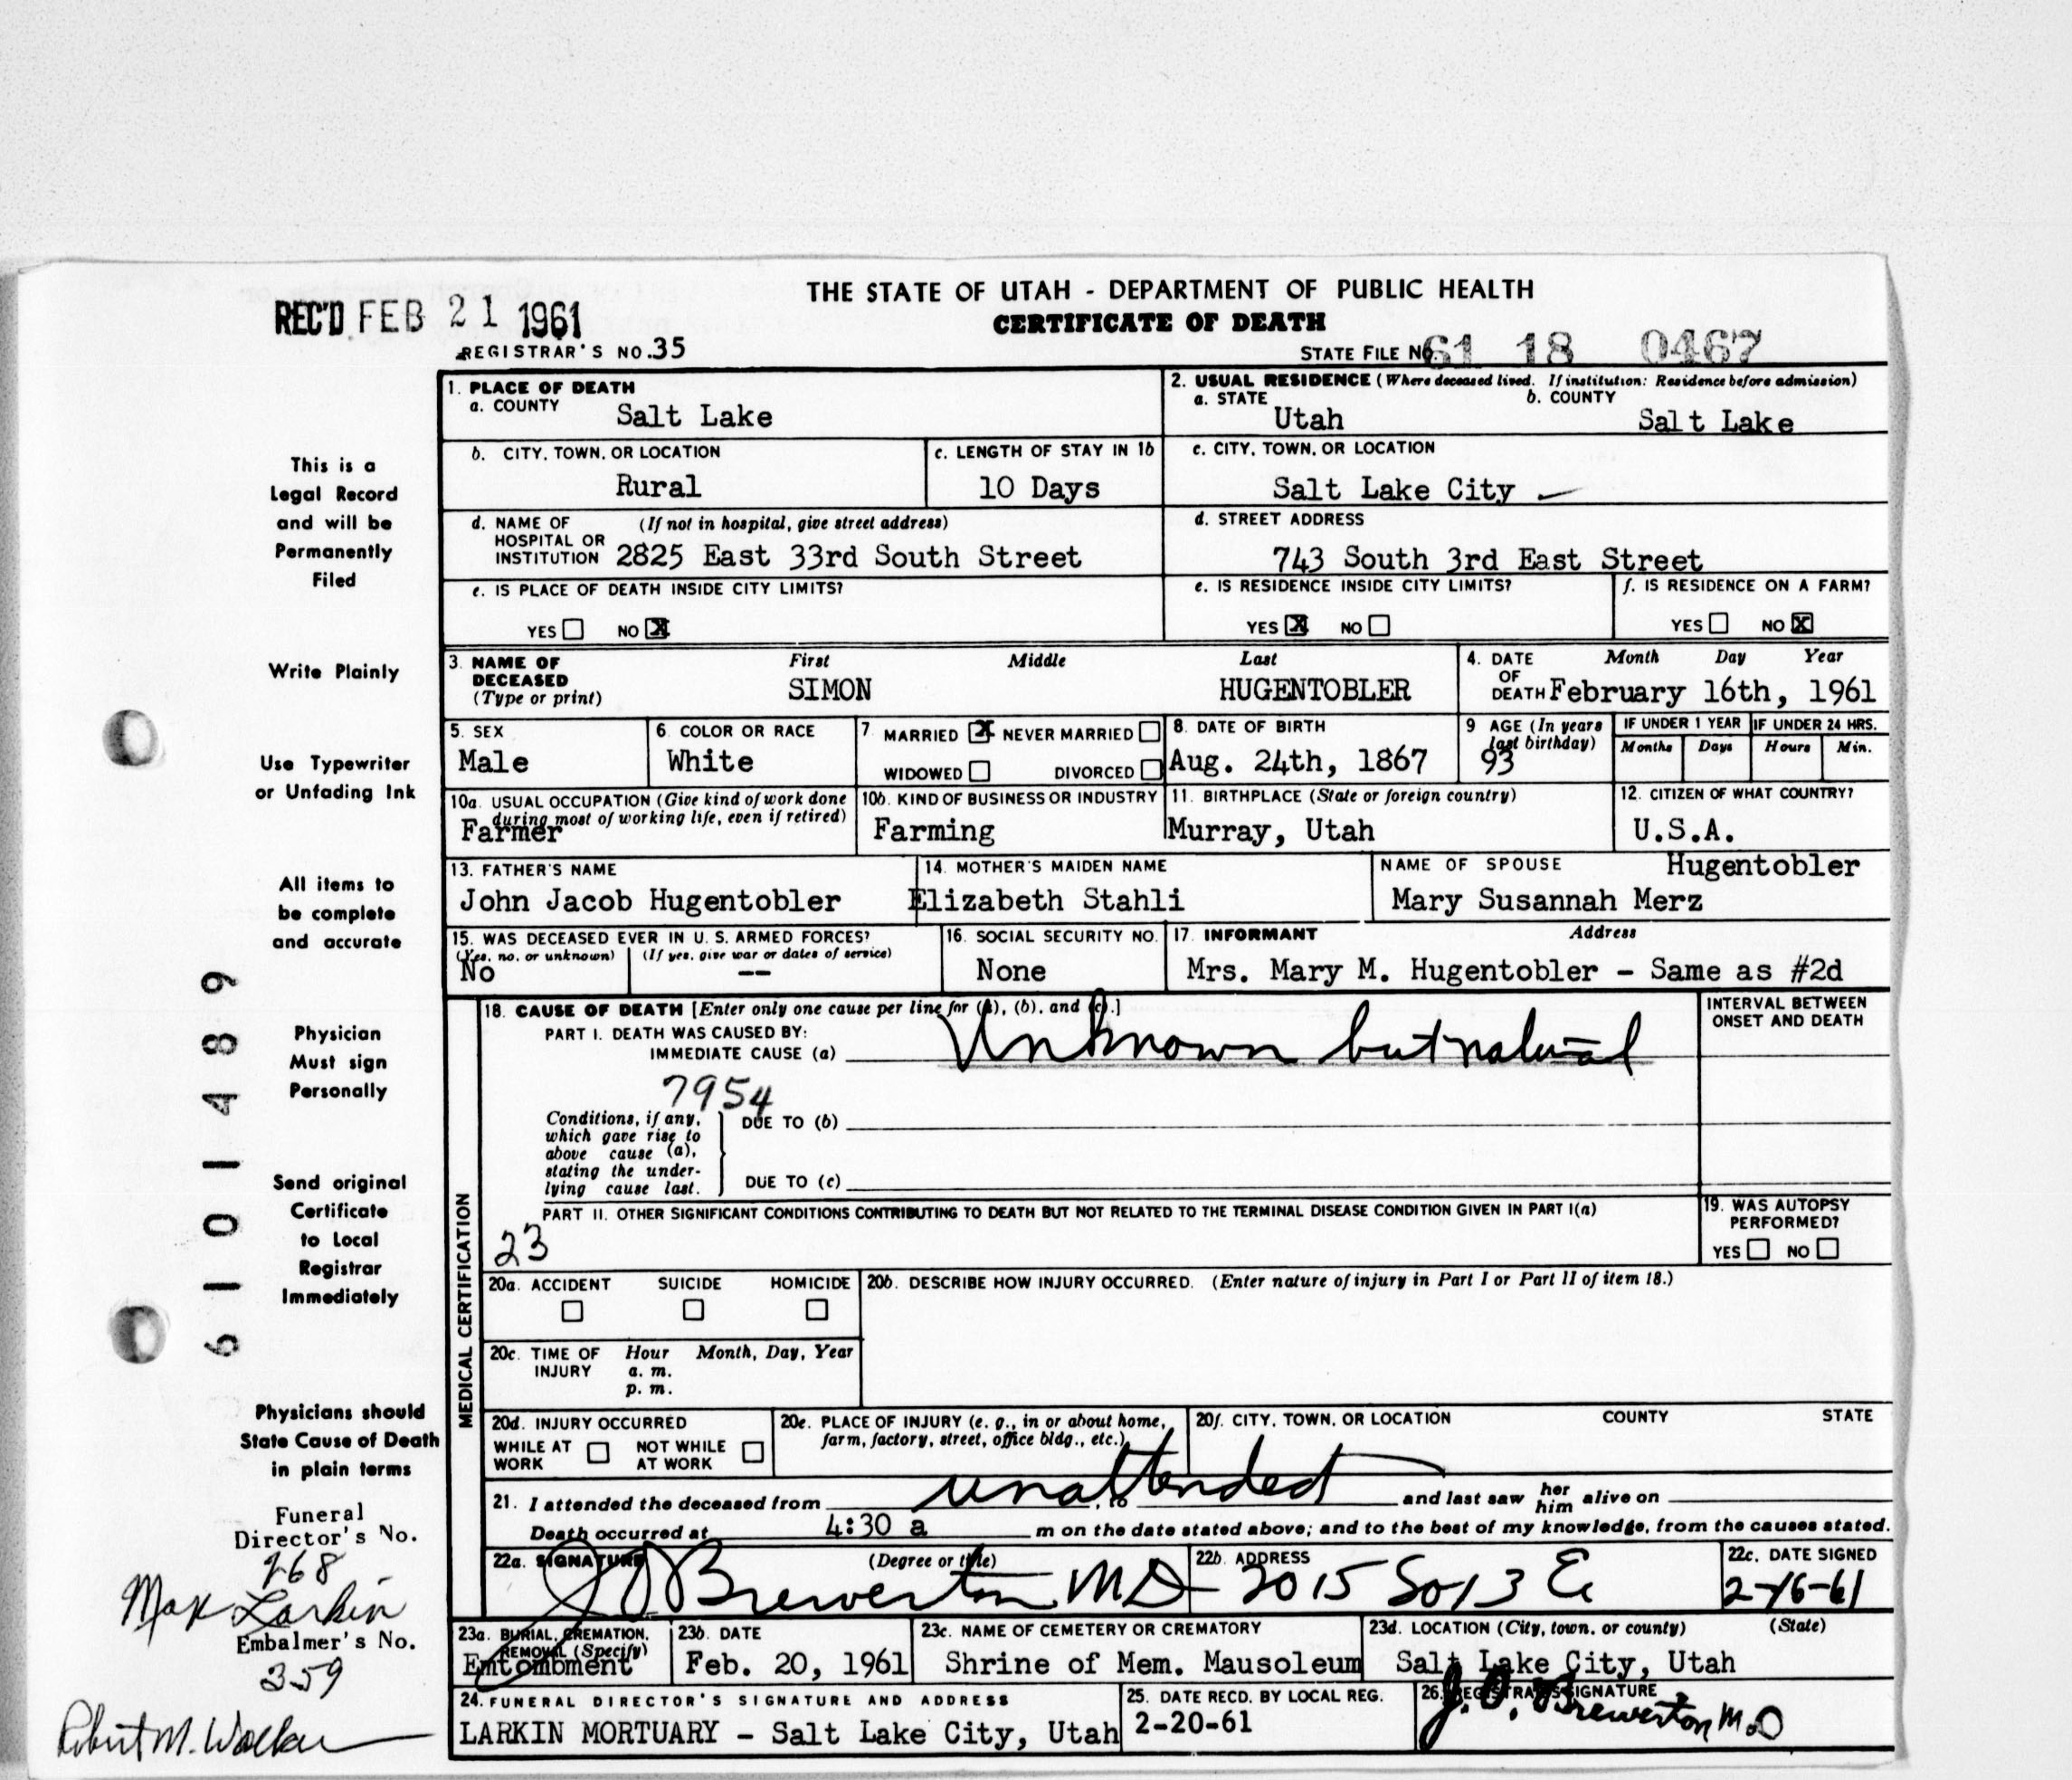 THE STATE OF UTAH - DEPARTMENT OF PUBLIC HEALTH
REC'D FEB 21 1961
CERTIFICATE OF DEATH
REGISTRAR'S NO. 35
STATE FILE NO. 61 18 0467
1. PLACE OF DEATH
a. COUNTY
Salt Lake
2. USUAL RESIDENCE (Where deceased lived. If institution: Residence before admission)
a. STATE b. COUNTY
Utah Salt Lake
b. CITY, TOWN, OR LOCATION
Rural
c. LENGTH OF STAY IN 1b
10 Days
c. CITY, TOWN, OR LOCATION
Salt Lake City
d. NAME OF HOSPITAL OR INSTITUTION (If not in hospital, give street address)
2825 East 33rd South Street
d. STREET ADDRESS
743 South 3rd East Street
e. IS PLACE OF DEATH INSIDE CITY LIMITS?
YES NO X
e. IS RESIDENCE INSIDE CITY LIMITS?
YES X NO
f. IS RESIDENCE ON A FARM?
YES NO X
3. NAME OF DECEASED (Type or print)
First Middle Last
SIMON HUGENTOBLER
4. DATE OF DEATH Month Day Year
February 16th, 1961
5. SEX
Male
6. COLOR OR RACE
White
7. MARRIED X NEVER MARRIED
WIDOWED DIVORCED
8. DATE OF BIRTH
Aug. 24th, 1867
9 AGE (In years last birthday)
93
IF UNDER 1 YEAR IF UNDER 24 HRS.
Months Days Hours Min.
10a. USUAL OCCUPATION (Give kind of work done during most of working life, even if retired)
Farmer
10b. KIND OF BUSINESS OR INDUSTRY
Farming
11. BIRTHPLACE (State or foreign country)
Murray, Utah
12. CITIZEN OF WHAT COUNTRY?
U.S.A.
13. FATHER'S NAME
John Jacob Hugentobler
14. MOTHER'S MAIDEN NAME
Elizabeth Stahli
NAME OF SPOUSE Hugentobler
Mary Susannah Merz
15. WAS DECEASED EVER IN U. S. ARMED FORCES?
(Yes, no, or unknown) (If yes, give war or dates of service)
No --
16. SOCIAL SECURITY NO.
None
17. INFORMANT Address
Mrs. Mary M. Hugentobler - Same as #2d
MEDICAL CERTIFICATION
18. CAUSE OF DEATH [Enter only one cause per line for (a), (b), and (c).]
PART I. DEATH WAS CAUSED BY:
IMMEDIATE CAUSE (a) Unknown but natural
INTERVAL BETWEEN ONSET AND DEATH
7954
Conditions, if any, which gave rise to above cause (a), stating the underlying cause last.
DUE TO (b)
DUE TO (c)
PART II. OTHER SIGNIFICANT CONDITIONS CONTRIBUTING TO DEATH BUT NOT RELATED TO THE TERMINAL DISEASE CONDITION GIVEN IN PART I(a)
23
19. WAS AUTOPSY PERFORMED?
YES NO
20a. ACCIDENT SUICIDE HOMICIDE
20b. DESCRIBE HOW INJURY OCCURRED. (Enter nature of injury in Part I or Part II of item 18.)
20c. TIME OF INJURY Hour Month, Day, Year
a. m.
p. m.
20d. INJURY OCCURRED
WHILE AT WORK NOT WHILE AT WORK
20e. PLACE OF INJURY (e. g., in or about home, farm, factory, street, office bldg., etc.)
20f. CITY, TOWN, OR LOCATION COUNTY STATE
21. I attended the deceased from unattended, to and last saw her him alive on
Death occurred at 4:30 a m on the date stated above; and to the best of my knowledge, from the causes stated.
22a. SIGNATURE (Degree or title)
J O Brewerton MD
22b. ADDRESS
2015 So 13 E
22c. DATE SIGNED
2-16-61
23a. BURIAL, CREMATION, REMOVAL (Specify)
Entombment
23b. DATE
Feb. 20, 1961
23c. NAME OF CEMETERY OR CREMATORY
Shrine of Mem. Mausoleum
23d. LOCATION (City, town, or county) (State)
Salt Lake City, Utah
24. FUNERAL DIRECTOR'S SIGNATURE AND ADDRESS
LARKIN MORTUARY - Salt Lake City, Utah
25. DATE RECD. BY LOCAL REG.
2-20-61
26. REGISTRAR'S SIGNATURE
J. O. Brewerton M.D
This is a
Legal Record
and will be
Permanently
Filed
Write Plainly
Use Typewriter
or Unfading Ink
All items to
be complete
and accurate
Physician
Must sign
Personally
Send original
Certificate
to Local
Registrar
Immediately
Physicians should
State Cause of Death
in plain terms
Funeral
Director's No.
268
Max Larkin
Embalmer's No.
359
Robert M. Walker
6101489